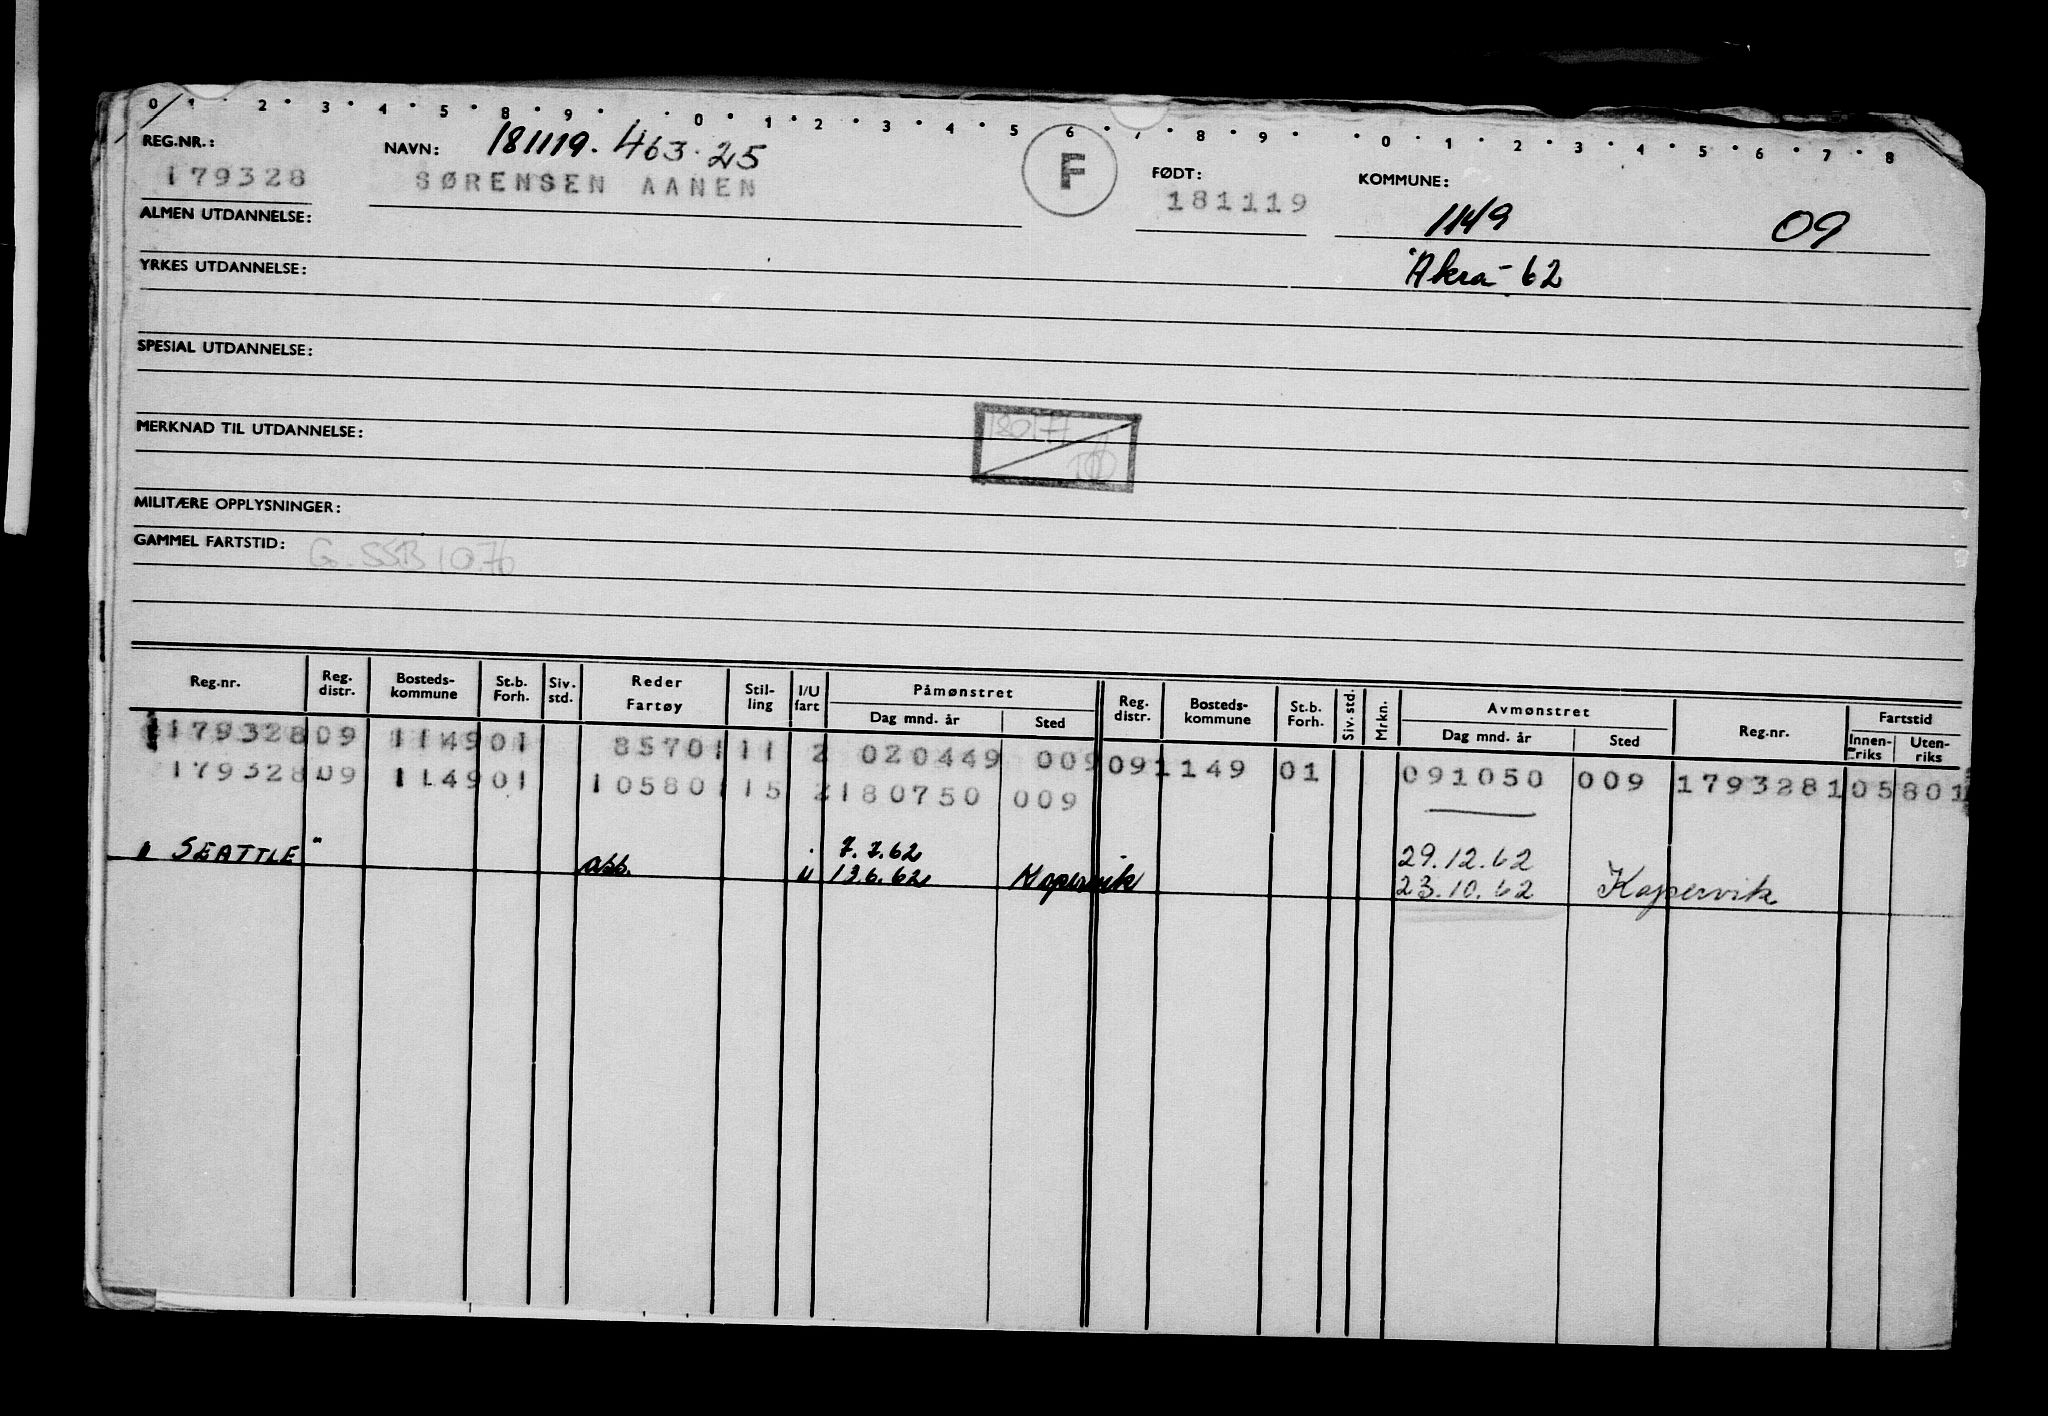 0 1 2 3 4 5 8 9 0 1 2 3 4 5 6 7 8 9 0 1 2 3 4 5 6 7 8
REG.NR.: NAVN: 181119. 463.25 F FØDT: KOMMUNE:
179328 SØRENSEN AANEN 181119 1149 09
ALMEN UTDANNELSE:
YRKES UTDANNELSE: Åkra - 62
SPESIAL UTDANNELSE:
MERKNAD TIL UTDANNELSE:
MILITÆRE OPPLYSNINGER:
GAMMEL FARTSTID: G. SSB 10.76
Reg.nr. Reg. distr. Bosteds-kommune St.b. Forh. Siv. std. Reder Fartøy Stil-ling I/U fart Påmønstret Dag mnd. år Sted Reg. distr. Bosteds-kommune St.b. Forh. Siv. std. Mrkn. Avmønstret Dag mnd. år Sted Reg.nr. Fartstid Innen-riks Uten-riks
179328 09 1149 01 85701 11 2 020449 009 09 1149 01 091050 009 179328 1 05 801
179328 09 1149 01 10580 1 15 2 180750 009
" SEATTLE " 7.7.62 29.12.62
ass. u 13.6.62 Kopervik 23.10.62 Kopervik